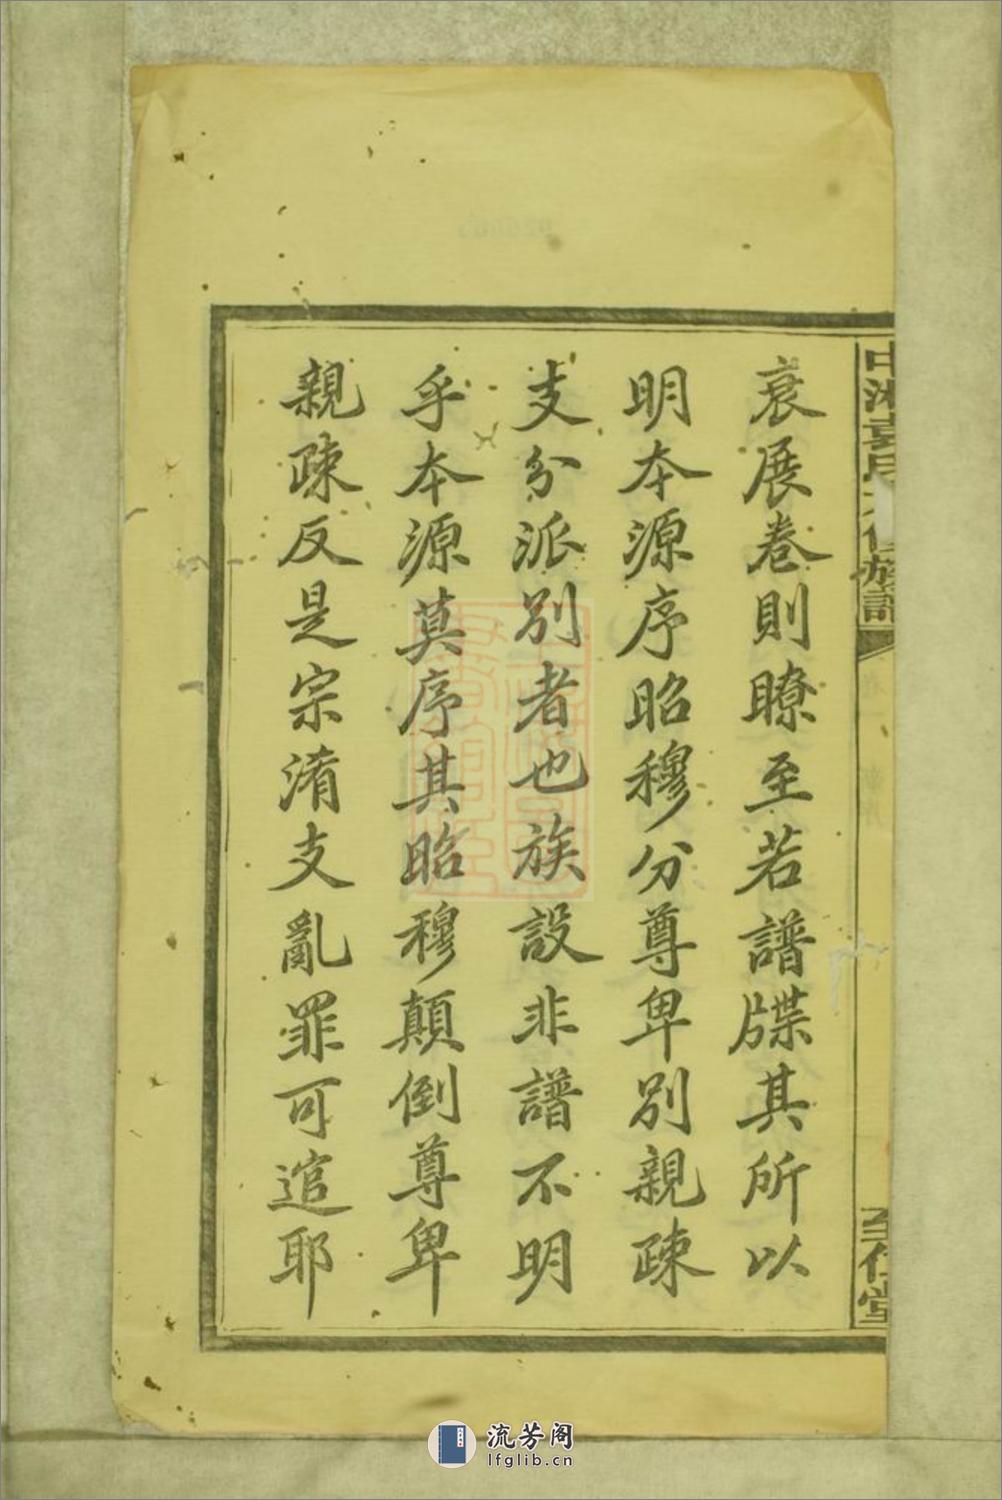 衰展卷則瞭至若譜牒其所以
明本源序昭穆分尊卑別親疎
支分派別者也族設非譜不明
乎本源莫序其昭穆顛倒尊卑
親疎反是宗淆支亂罪可逭耶
族譜
至仁堂
流芳阁
lfglib.cn